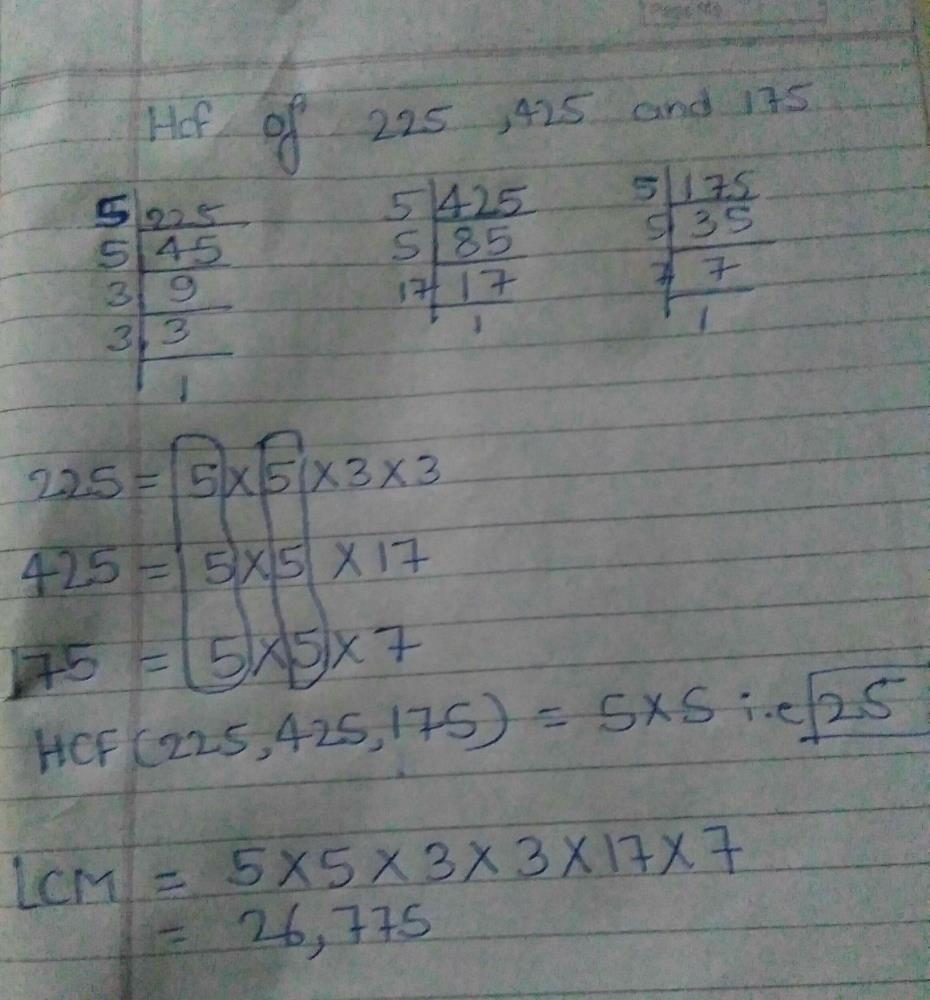 Page No
Hcf of 225 , 425 and 175
5 225
5 45
3 9
3 3
1
5 425
5 85
17 17
1
5 175
5 35
7 7
1
225 = 5 × 5 × 3 × 3
425 = 5 × 5 × 17
175 = 5 × 5 × 7
HCF (225, 425, 175) = 5 × 5 i.e 25
LCM = 5 × 5 × 3 × 3 × 17 × 7
= 26,775